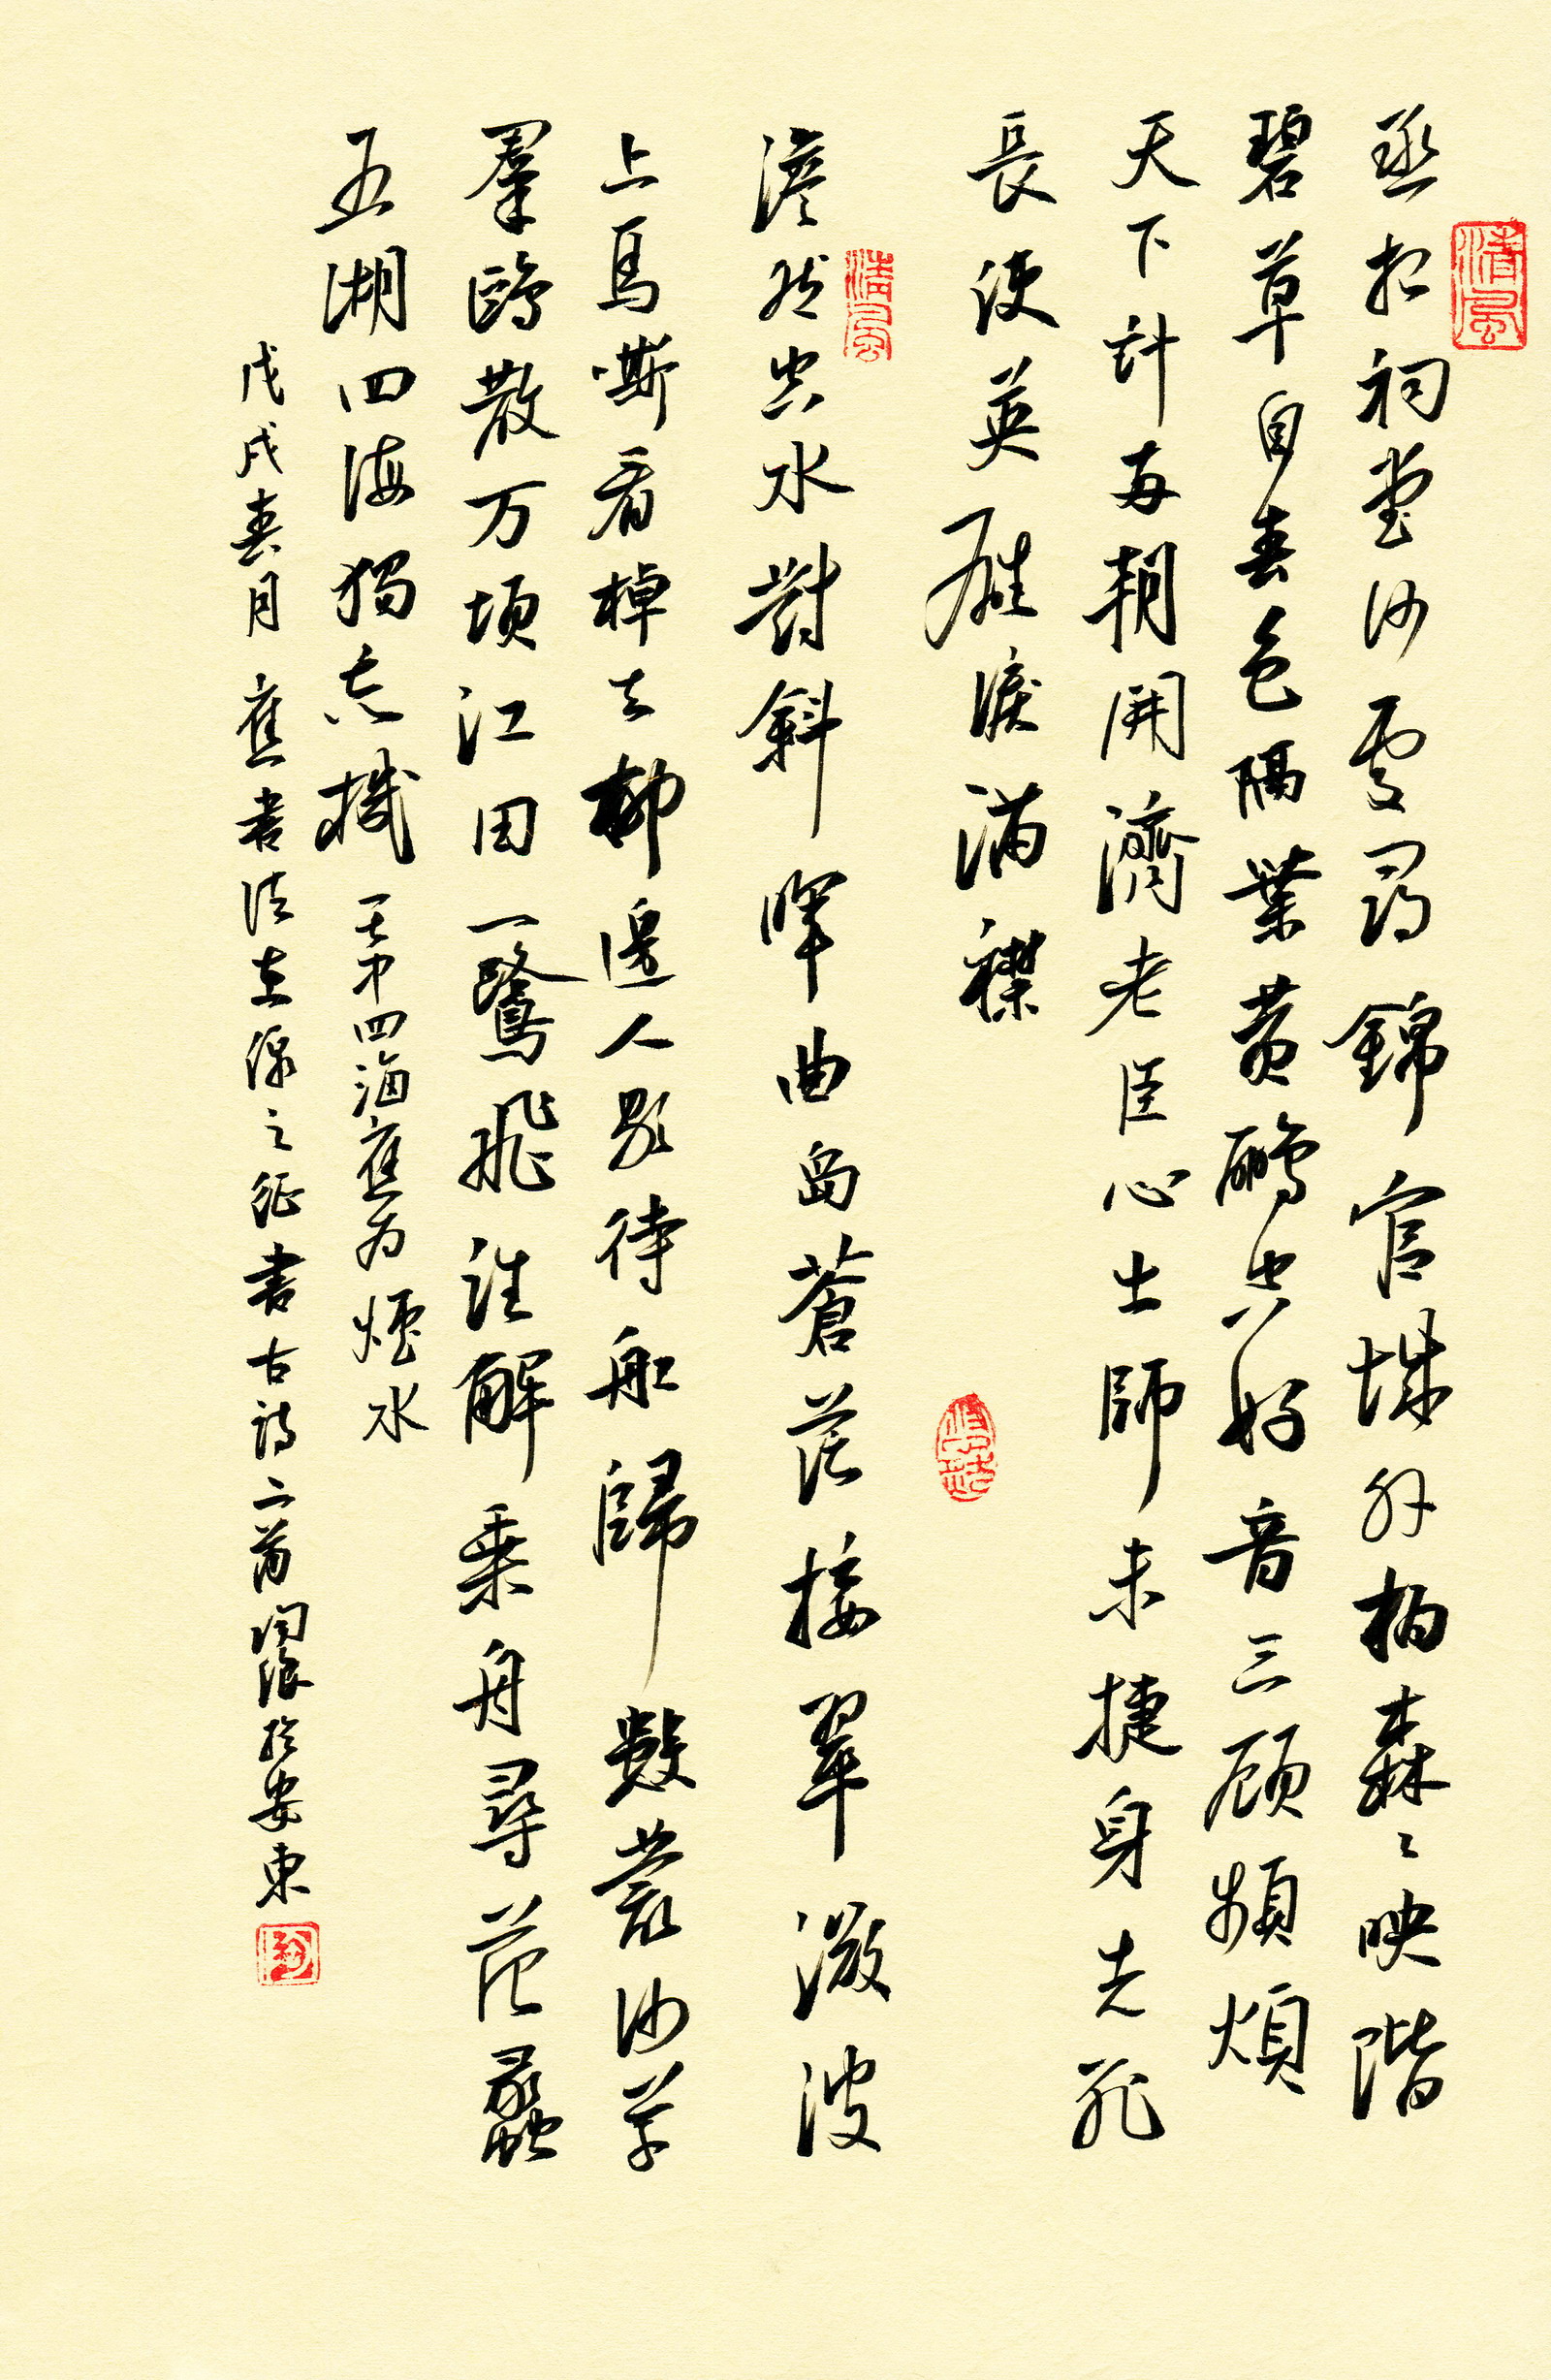 丞相祠堂何處尋錦官城外柏森々映階
碧草自春色隔葉黄鸝空好音三顾頻煩
天下計每朝開濟老臣心出師未捷身先死
長使英雄淚满襟
澹然空水對斜暉曲島蒼茫接翠微波
上馬嘶看棹去柳邊人歇待船歸數叢沙草
羣鷗散万頃江田一鷺飛誰解乘舟尋范蠡
五湖四海獨忘機 其第四海應为煙水
戊戌春月應書法在線之征書古詩二首 於安東
清風
清風